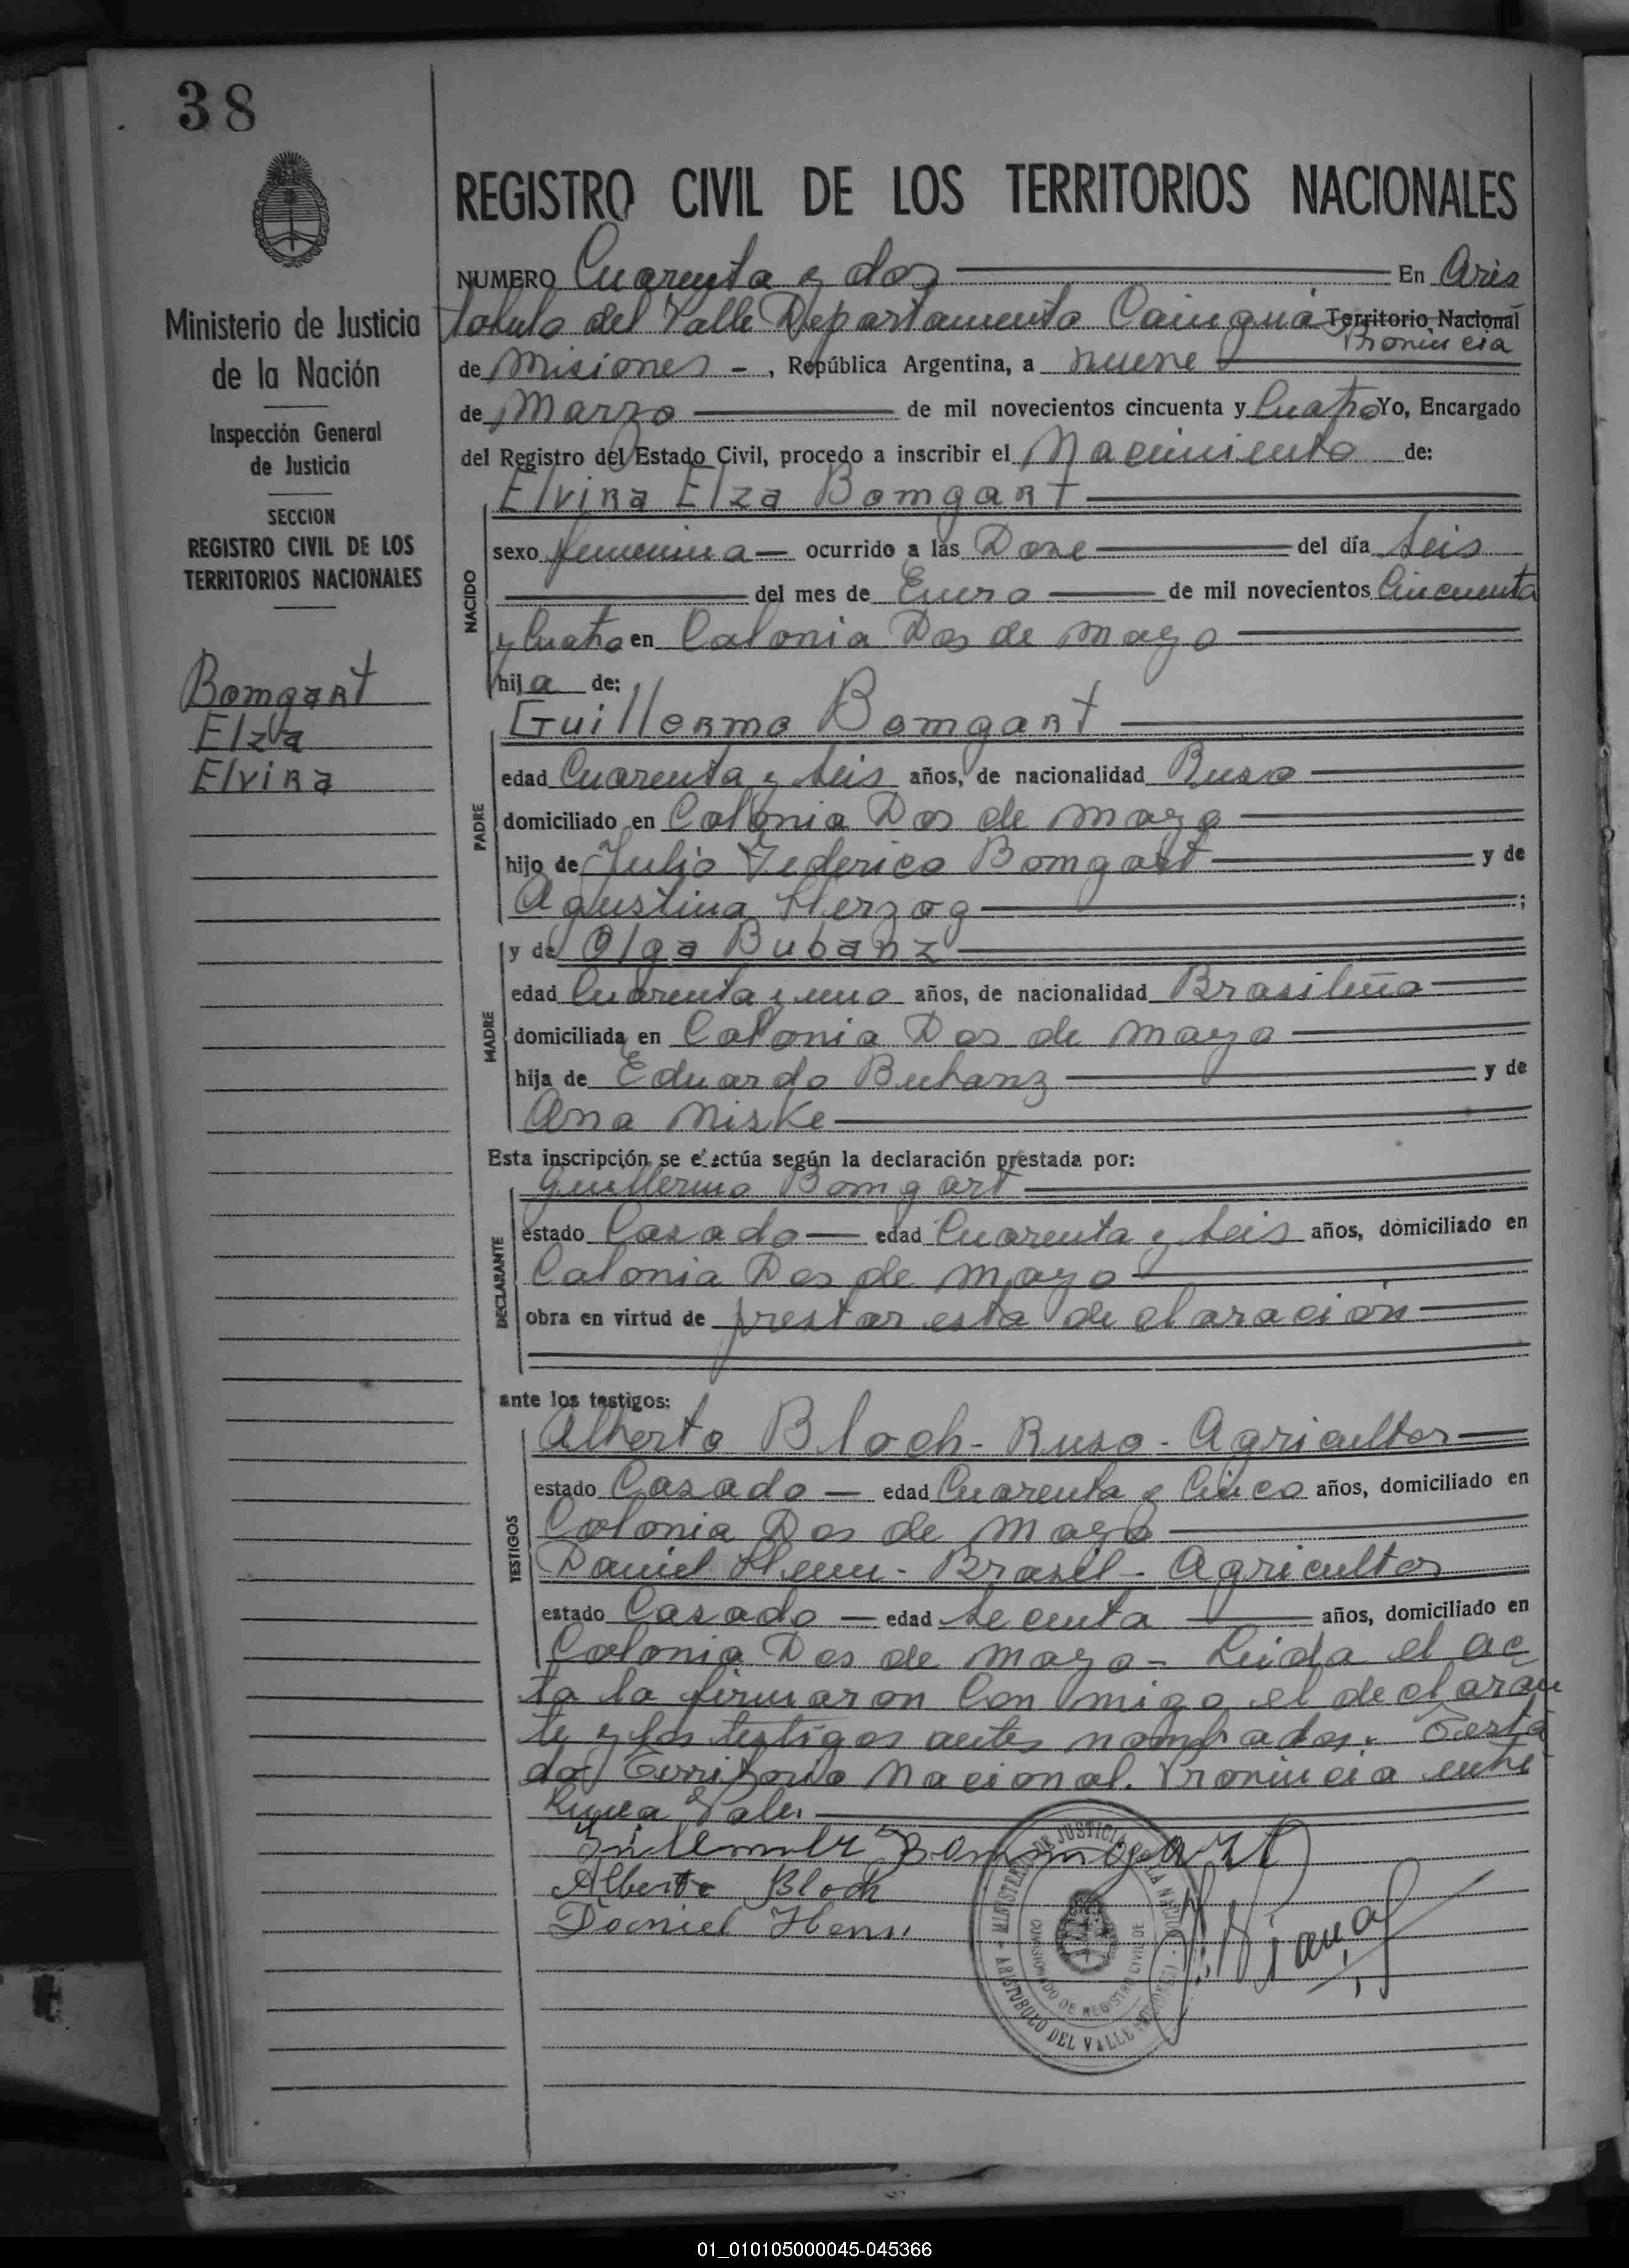 38
REGISTRO CIVIL DE LOS TERRITORIOS NACIONALES
Ministerio de Justicia
de la Nación
Inspección General
de Justicia
SECCION
REGISTRO CIVIL DE LOS
TERRITORIOS NACIONALES
Bomgart
Elza
Elvira
NUMERO Cuarenta y dos En Aris
tobulo del Valle Departamento Cainguá Territorio Nacional
Provincia
de Misiones -, República Argentina, a nueve
de Marzo de mil novecientos cincuenta y Cuatro Yo, Encargado
del Registro del Estado Civil, procedo a inscribir el Nacimiento de:
Elvira Elza Bomgart
NACIDO
sexo femenina ocurrido a las Doze del día Seis
del mes de Enero de mil novecientos Cincuenta
y Cuatro en Colonia Dos de Mayo
hija de:
Guillermo Bomgart
PADRE
edad Cuarenta y Seis años, de nacionalidad Ruso
domiciliado en Colonia Dos de Mayo
hijo de Julio Federico Bomgart y de
Agustina Herzog ;
y de Olga Bubanz
MADRE
edad Cuarenta y uno años, de nacionalidad Brasileña
domiciliada en Colonia Dos de Mayo
hija de Eduardo Bubanz y de
Ana Miske
Esta inscripción se efectúa según la declaración prestada por:
Guillermo Bomgart
DECLARANTE
estado Casado edad Cuarenta y Seis años, domiciliado en
Colonia Dos de Mayo
obra en virtud de prestar esta declaración
ante los testigos:
Alberto Bloch - Ruso - Agricultor
TESTIGOS
estado Casado edad Cuarenta y Cinco años, domiciliado en
Colonia Dos de Mayo
Daniel Henn - Brasil - Agricultor
estado Casado edad Secenta años, domiciliado en
Colonia Dos de Mayo - Leida el ac
ta la firmaron Con migo el declaran
te y los testigos antes nombrados. Testa
do Territorio Nacional. Provincia entre
linea Vale.
Bommgart
Alberto Bloch
Daniel Henn
MINISTERIO DE JUSTICIA DE LA NACION
ARISTOBULO DEL VALLE (MISIONES)
COMISIONADO DE REGISTRO CIVIL DE
01_010105000045-045366